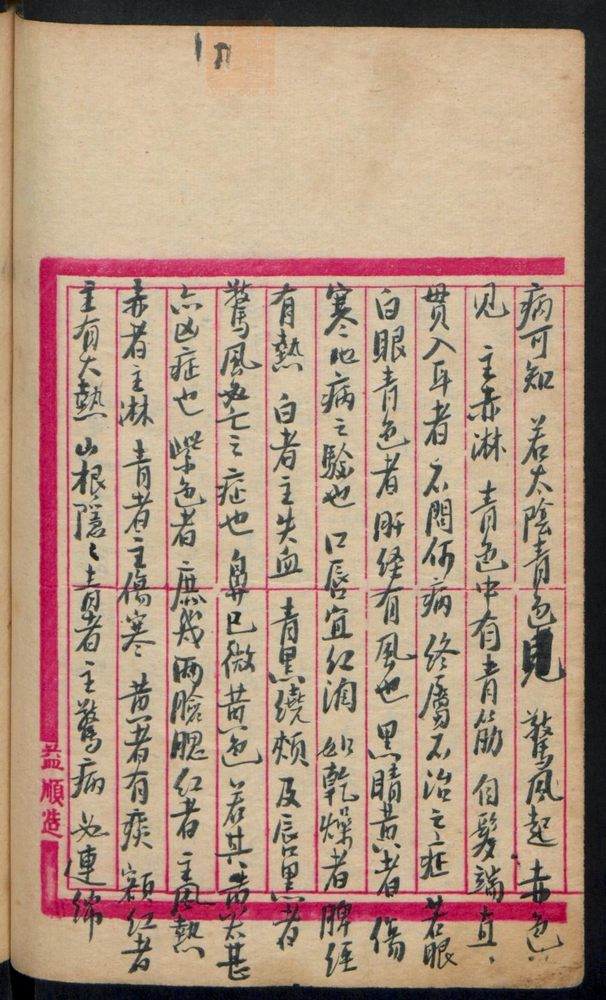 病可知 若太陰青色見 驚風起 赤色
见 主赤淋 青色中有青筋 自髮端直
貫入耳者 不問何病 终屬不治之症 若眼
白眼青色者 肝经有風也 黑睛黄者 傷
寒 病之驗也 口唇宜红润 如乾燥者 脾经
有熱 白者主失血 青黑繞頰 及唇黑者
驚風 亡之症也 鼻 微黄色 若其黄太甚
亦凶症也 紫色者 庶幾 兩臉腮红者 主風熱
赤者主淋 青者主傷寒 黄者有痰 額红者
主有大熱 山根隱〻青者 主驚病 必連绵
益順造